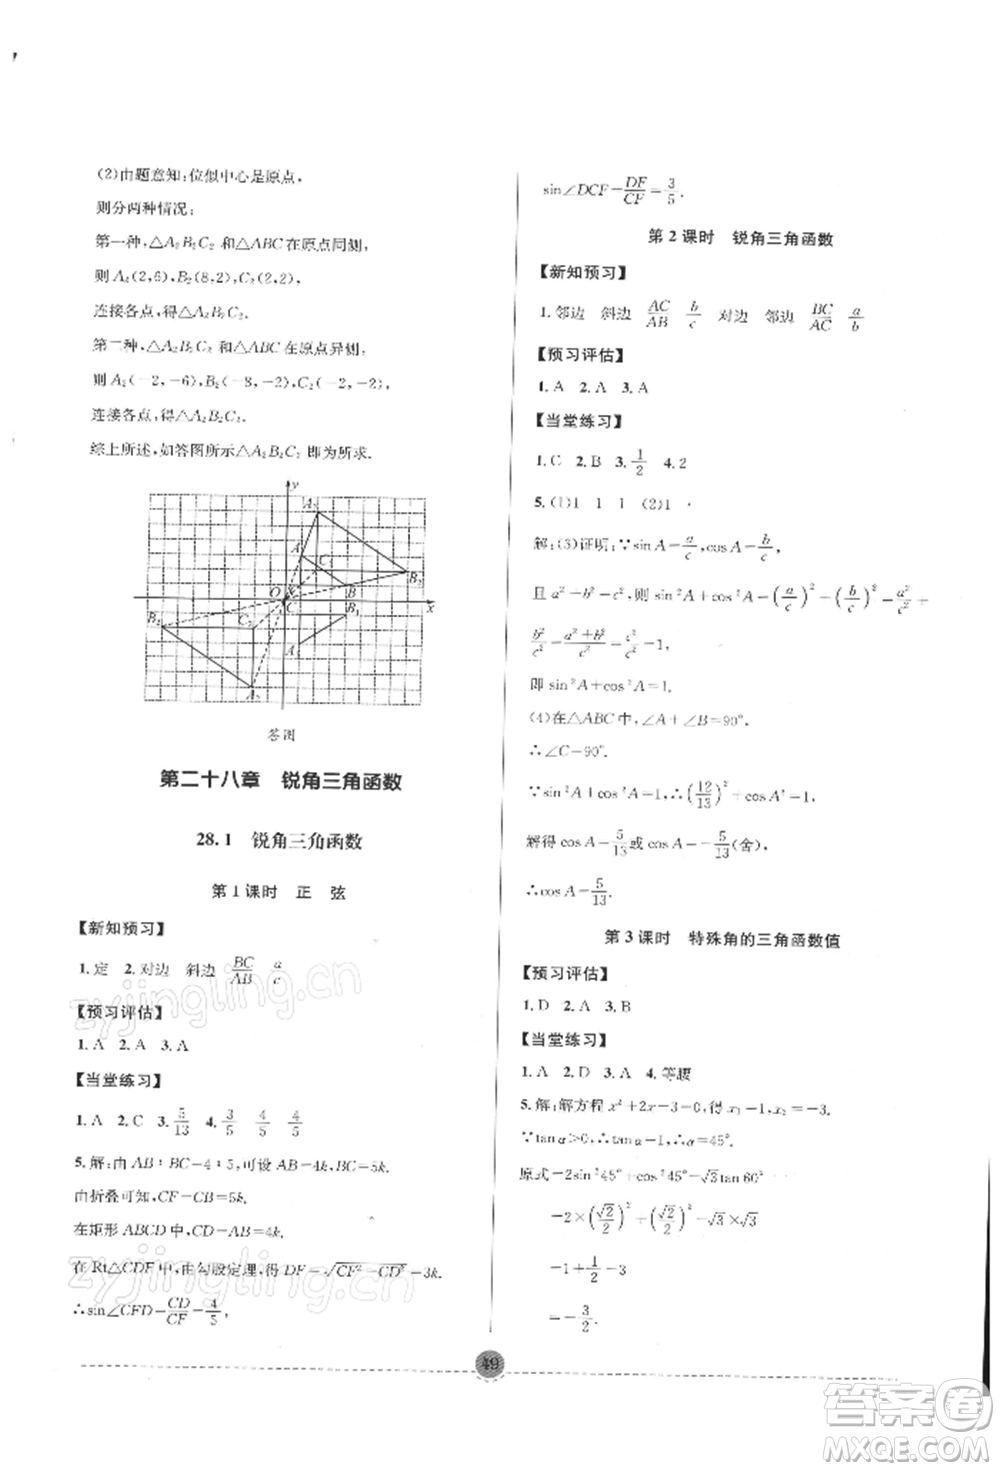 (2)由题意知:位似中心是原点,
则分两种情况:
第一种,△A₂B₂C₂ 和△ABC在原点同侧,
则 A₂(2,6),B₂(8,2),C₂(2,2),
连接各点,得△A₂B₂C₂.
第二种,△A₂B₂C₂ 和△ABC在原点异侧,
则 A₂(-2,-6),B₂(-8,-2),C₂(-2,-2),
连接各点,得△A₂B₂C₂.
综上所述,如答图所示△A₂B₂C₂ 即为所求.
y
A₂
A
C₂
B₂
B
O
C
x
B₂
C₂
B₁
A₁
A₂
答图
第二十八章 锐角三角函数
28.1 锐角三角函数
第1课时 正 弦
【新知预习】
1.定 2.对边 斜边 BC/AB a/c
【预习评估】
1.A 2.A 3.A
【当堂练习】
1.A 2.C 3.5/13 4.3/5 4/5 4/5
5.解:由 AB∶BC=4∶5,可设 AB=4k,BC=5k.
由折叠可知,CF=CB=5k.
在矩形 ABCD 中,CD=AB=4k.
在 Rt△CDF 中,由勾股定理,得 DF=√(CF²-CD²)=3k.
∴sin∠CFD=CD/CF=4/5,
sin∠DCF=DF/CF=3/5.
第2课时 锐角三角函数
【新知预习】
1.邻边 斜边 AC/AB b/c 对边 邻边 BC/AC a/b
【预习评估】
1.A 2.A 3.A
【当堂练习】
1.C 2.B 3.1/2 4.2
5.(1)1 1 1 (2)1
解:(3)证明:∵sin A=a/c,cos A=b/c,
且 a²+b²=c²,则 sin²A+cos²A=(a/c)²+(b/c)²=a²/c²+
b²/c²=(a²+b²)/c²=c²/c²=1,
即 sin²A+cos²A=1.
(4)在△ABC 中,∠A+∠B=90°.
∴∠C=90°.
∵sin²A+cos²A=1,∴(12/13)²+cos A²=1,
解得 cos A=5/13或 cos A=-5/13(舍).
∴cos A=5/13.
第3课时 特殊角的三角函数值
【预习评估】
1.D 2.A 3.B
【当堂练习】
1.A 2.D 3.A 4.等腰
5.解:解方程 x²+2x-3=0,得 x₁=1,x₂=-3.
∵tan α>0,∴tan α=1,∴α=45°.
原式=2sin²45°+cos²45°-√3tan 60°
=2×(√2/2)²+(√2/2)²-√3×√3
=1+1/2-3
=-3/2.
49
zyjingling.cn
zyjingling.cn
答案卷
MXQE.COM